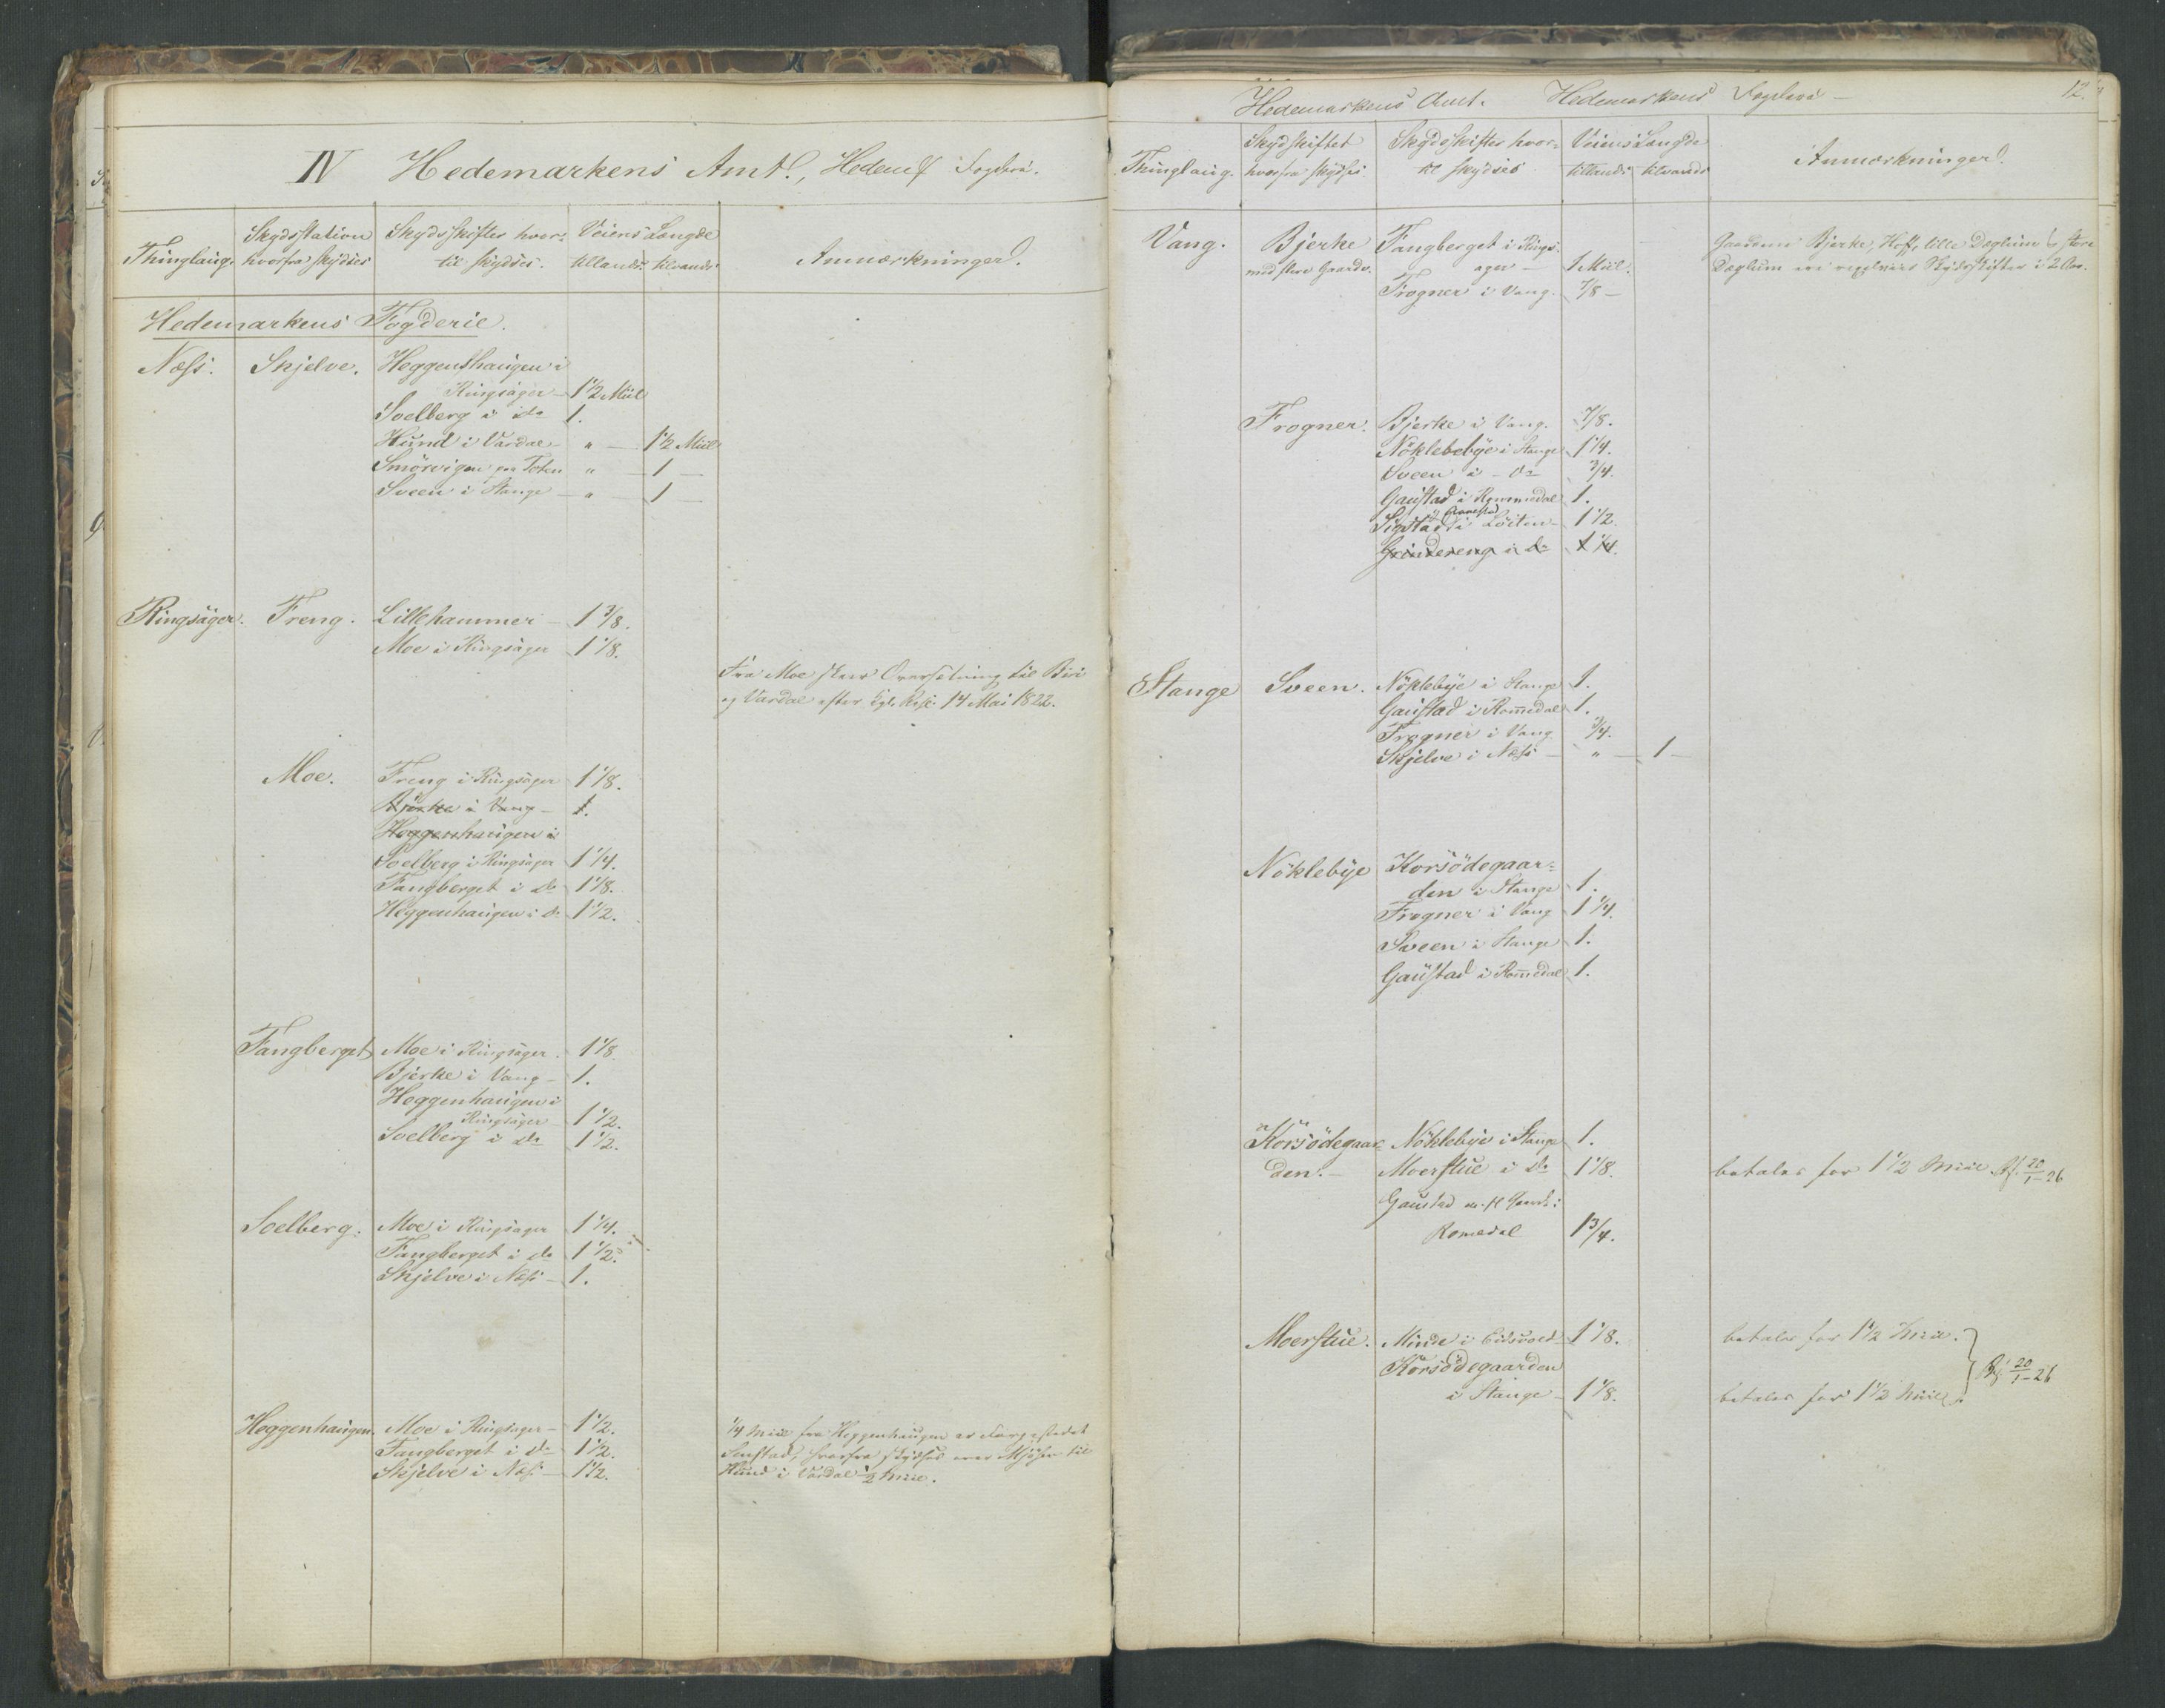 IV Hedemarkens Amt., Hedem. Fogderi.
Thinglaug. Skydsstation hvorfra skydses Skydsskifter hvor- til skydses. Veiens Længde tillands. tilvands Anmærkninger.
Hedemarkens Fogderie.
Næss. Skjelve. Heggenshaugen i
Ringsager 1 1/2 Miil
Soelberg i do 1.
Hund i Vardal " 1 1/2 Miil
Smörvigen paa Toten " 1
Sveen i Stange " 1
Ringsager. Freng. Lillehammer 1 3/8.
Moe i Ringsager 1 1/8.
Fra Moe skeer Oversætning til Biri
og Vardal efter kgl. Res. 14 Mai 1822.
Moe. Freng i Ringsager 1 1/8.
Bjerke i Vang 1.
Heggenhaugen i
Soelberg i Ringsager 1 1/4.
Fangberget i do 1 1/8.
Heggenhaugen i do 1 1/2.
Fangberget Moe i Ringsager. 1 1/8.
Bjerke i Vang 1.
Heggenhaugen i
Ringsager 1 1/2.
Soelberg i do 1 1/2.
Soelberg. Moe i Ringsager 1 1/4.
Fangberget i do 1 1/2.
Skjelve i Næss 1.
Heggenhaugen. Moe i Ringsager 1 1/2. 1/4 Miil fra Heggenhaugen er Færgestedet
Fangberget i do 1 1/2. hvorfra skydses over Mjösen til
Skjelve i Næss 1 1/2. Hund i Vardal 1/2 Miil.
Hedemarkens Amt. Hedemarkens Fogderi 12.
Thinglaug. Skydsskiftet hvorfra skydses. Skydsskifter hvor- til skydses Veiens Længde tillands tilvands Anmærkninger.
Vang. Bjerke Fangberget i Rings- Gaardene Bjerke, Hoff, lille Dæglum & store
med flere Gaarde. ager 1 Miil. Dæglum ere vexelviis Skydsskifter i 2 Aar.
Frogner i Vang. 7/8
Frogner. Bjerke i Vang. 7/8.
Nöklebye i Stange 1 1/4.
Sveen i do 3/4.
Gaustad i Rommedal 1.
Sigstad i Löiten 1 1/2.
Grindereng i do 1 1/4.
Stange Sveen. Nöklebye i Stange 1.
Gaustad i Romedal 1.
Frogner i Vang 3/4.
Skjelve i Næss " 1
Nöklebye Korsödegaar-
den i Stange 1.
Frogner i Vang 1 1/4.
Sveen i Stange 1.
Gaustad i Romedal 1.
Korsödegaar- Nöklebye i Stange 1.
den. Moerstue i do 1 1/8. betales for 1 1/2 Miil 20/1 - 26
Gaustad m. fl. Gaarde i
Romedal 1 3/4.
Moerstue. Minde i Eidsvold 1 1/8. betales for 1 1/2 Miil.
Korsödegaarden 20/1 - 26
i Stange 1 1/8. betales for 1 1/2 Miil